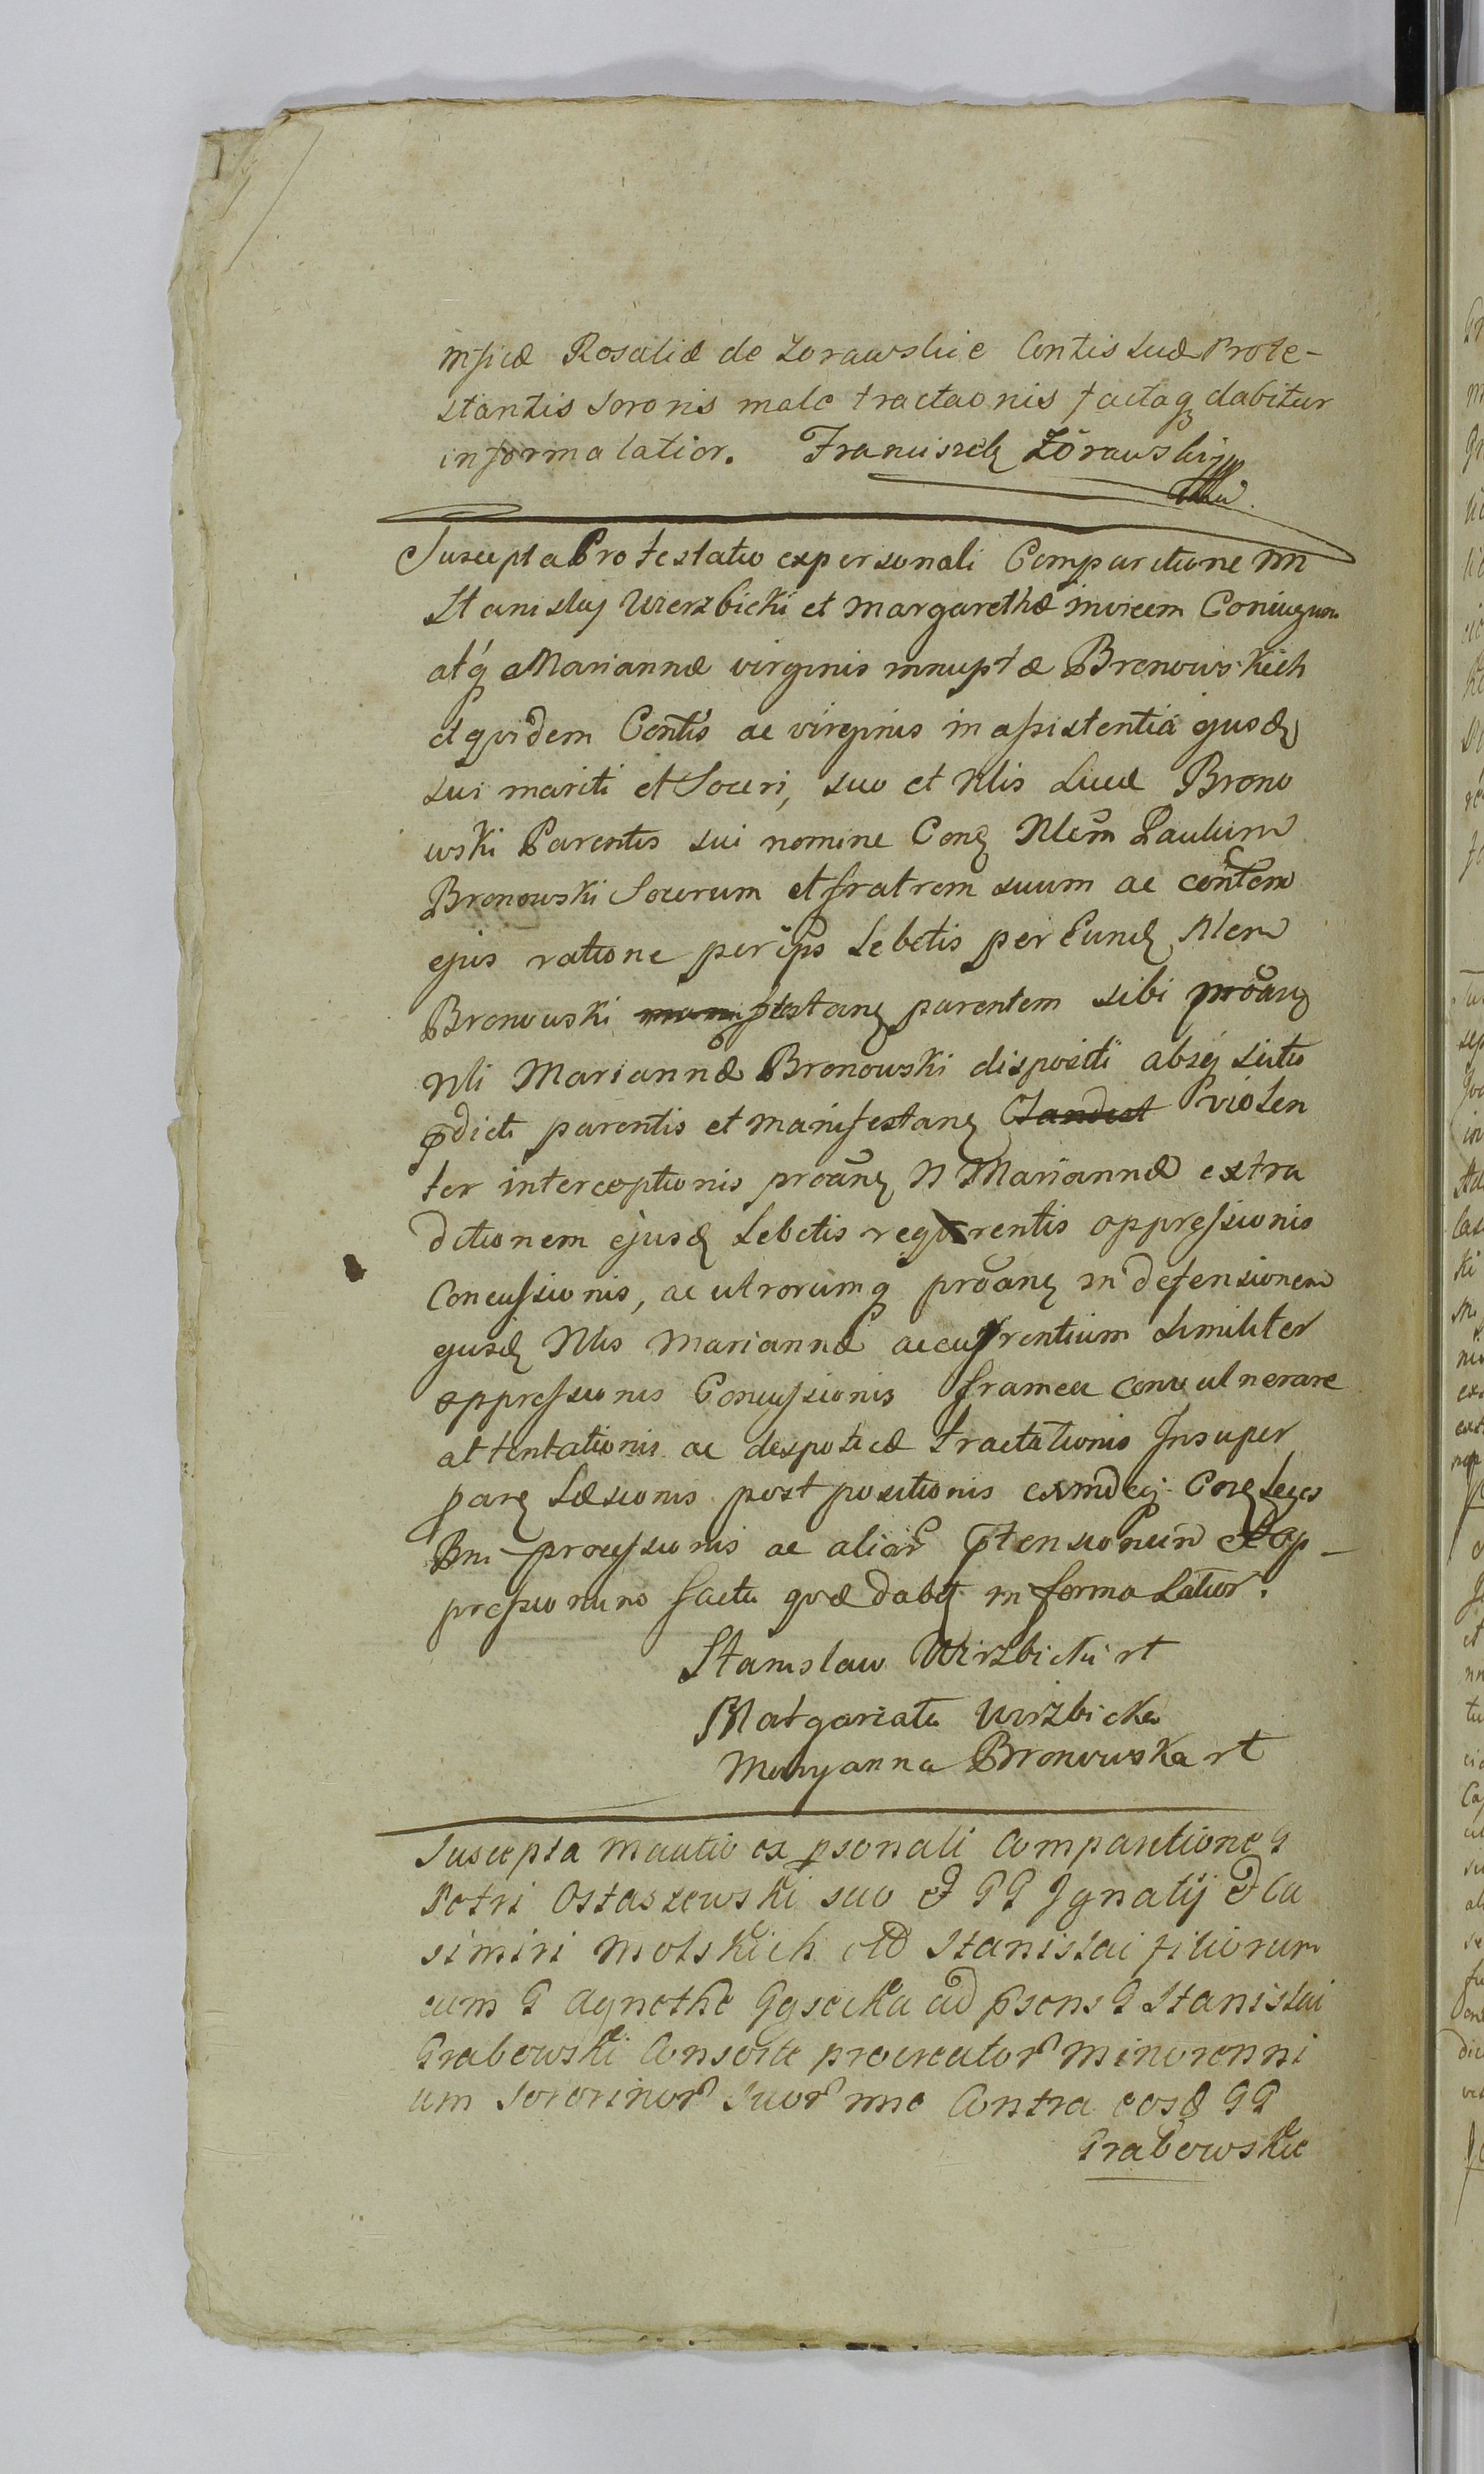 insicæ Rosaliæ de Zorawskie Contis suæ Prote-
stantis sororis male tractaonis factaqꝫ dabitur
in forma latior. Franciszek Zórawski mp
Suscepta Protestatio ex personali Comparitione NN
Stanislaj Wierzbicki et Margarethæ invicem Coniugum
atq̃ Mariannæ virginis innuptæ Bronowskich
et quidem Contis ac virginis in assistentia ejusdꝫ
sui mariti et Soceri, suo et Nlis Lucæ Brono
wski Parentis sui nomine Conꝫ Nlem Paulum
Bronowski Socerum et fratrem suum ac contem
ejus ratione per ip̃s Lebetis per Eundꝫ Nlem
Bronowski manifestanꝫ parentem sibi proãnꝫ
Nli Mariannæ Bronowski dispositi absqꝫ scitu
p̃dicti parentis et manifestanꝫ Clandest violen
ter interceptionis proãnꝫ N Mariannæ extra
ditionem ejusdꝫ Lebetis requirentis oppressionis
Concussionis, ac utrorumqꝫ proãnꝫ in defensionem
ejusdꝫ Nlis Mariannæ accurrentium similiter
oppressionis Concussionis framea convulnerare
attentationis ac despoticæ tractationis Insuper
parꝫ Læsionis post positionis exindeqꝫ Conꝫ Leges
Bni processionis ac aliar p̃tensionum et op-
pressionum facta quæ dabt̃ in forma Latior.
Stanislaw Wirzbicki rt
Matgarzata Wirzbicka
Maryanna Bronowska rt
Suscepta Mantio ex psonali Comparitione G
Petri Ostaszewski suo et GG Ignatij et Ca
simiri Molskich olD Stanislai filiorum
cum G Agnethe Gąsecka ad p̃sens G Stanislai
Grabowski Consorte procreator minorenni
um Sororinor Suor nne Contra eosd GG
Grabowskie